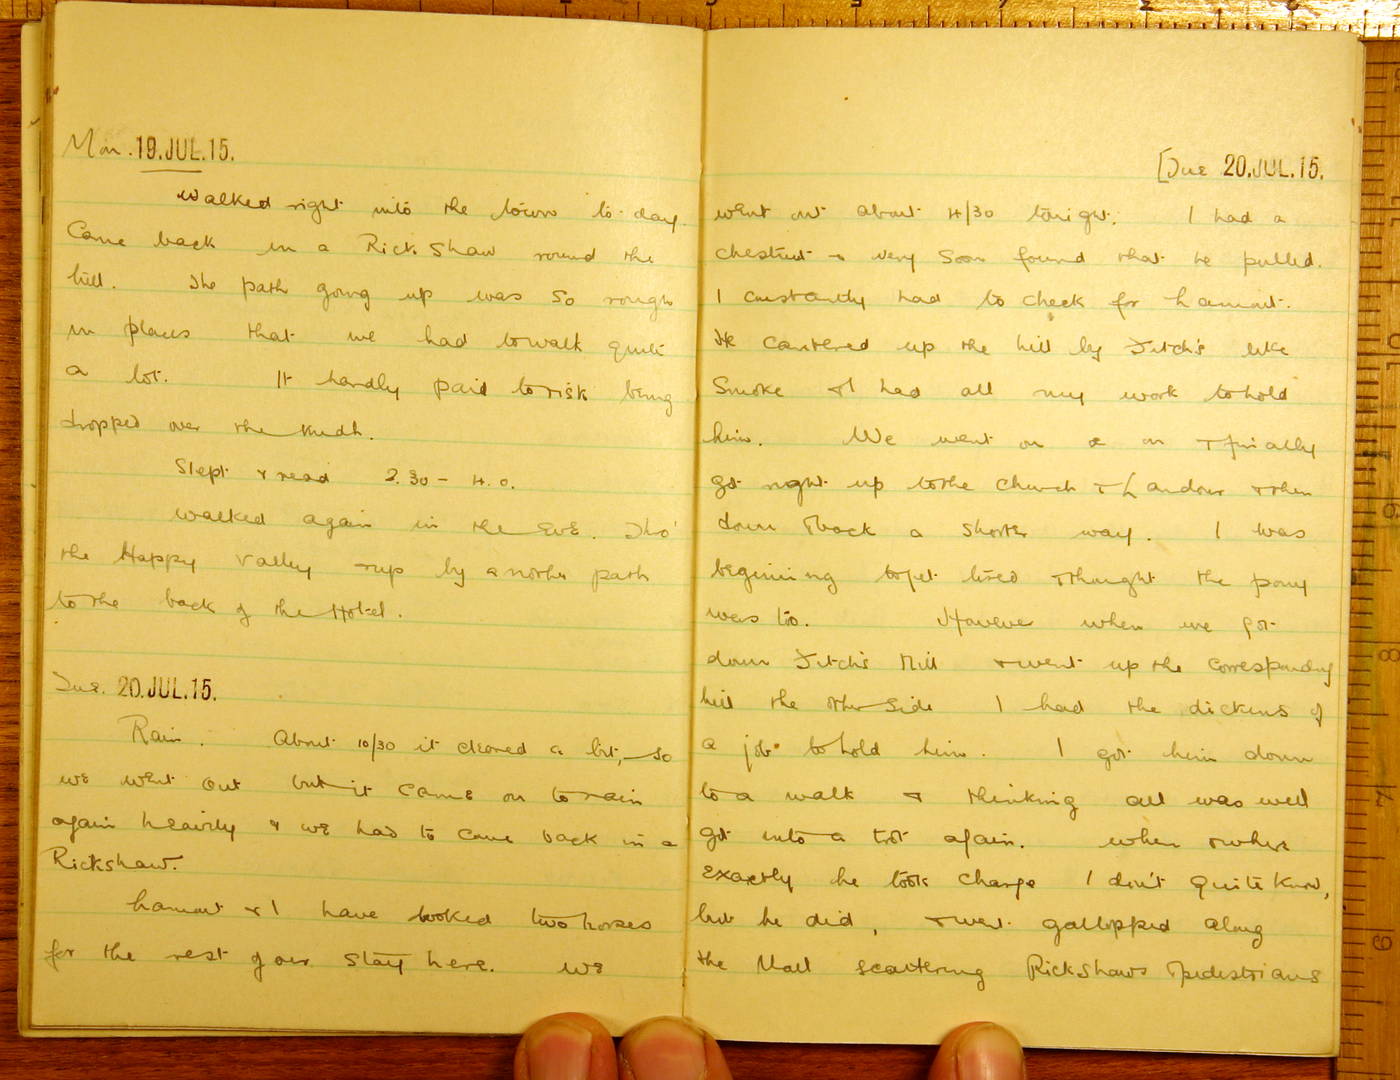 Mon. 19.JUL.15.
Walked right into the town to-day.
Came back in a Rick Shaw round the
hill. The path going up was so rough
in places that we had to walk quite
a lot. It hardly paid to risk being
dropped over the Khudh.
Slept & read 2.30 - 4.0.
Walked again in the Eve. Tho'
the Happy Valley & up by another path
to the back of the Hotel.
Tue. 20.JUL.15.
Rain. About 10/30 it cleared a bit, so
we went out but it came on to rain
again heavily & we had to come back in a
Rickshaw.
Lamont & I have booked two horses
for the rest of our stay here. We
[Tue 20.JUL.15.
went out about 4/30 tonight. I had a
chestnut & very soon found that he pulled.
I constantly had to check for Lamont.
He cantered up the hill by Fitch's like
smoke & I had all my work to hold
him. We went on & on & finally
got right up to the church & Landour & then
down & back a shorter way. I was
beginning to get tired & thought the pony
was too. However when we got
down Fitch's Hill & went up the corresponding
hill the other side I had the dickens of
a job to hold him. I got him down
to a walk & thinking all was well
got into a trot again. When & where
exactly he took charge I don't quite know,
but he did, & went gallopped along
the Mall scattering Rickshaws & pedestrians